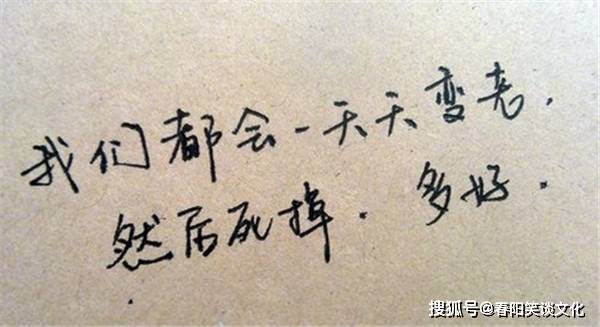 我们都会一天天变老.
然后死掉. 多好.
搜狐号@春阳笑谈文化